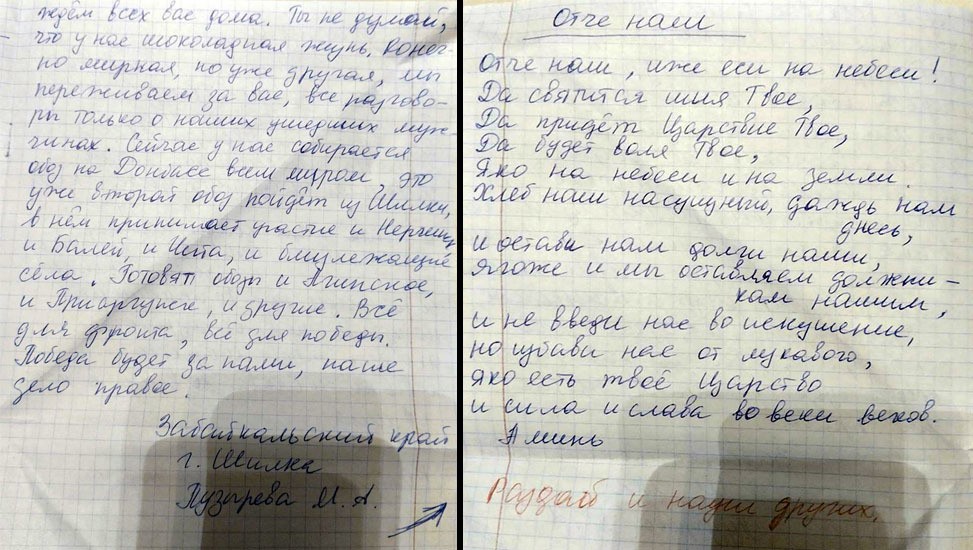 ждём всех вас дома. Ты не думай,
что у нас шоколадная жизнь. Конеч-
но мирная, но уже другая, мы
переживаем за вас, все разгово-
ры только о наших ушедших муж-
чинах. Сейчас у нас собирается
обоз на Донбасс всем миром, это
уже второй обоз пойдёт из Шилки,
в нём принимает участие и Нерчинск
и Балей и Чита, и близлежащие
сёла. Готовят обозы и Агинское,
и Приаргунск, и другие. Всё
для фронта, всё для победы.
Победа будет за нами, наше
дело правое.
Забайкальский край
г. Шилка
Пузырева М. А.
Отче наш
Отче наш, иже еси на небеси!
Да святится имя Твое,
Да придёт Царствие Твое,
Да будет воля Твое,
Яко на небеси и на земли.
Хлеб наш насущный, даждь нам
днесь,
и остави нам долги наши,
якоже и мы оставляем должни-
кам нашим,
и не введи нас во искушение,
но избави нас от лукавого,
яко есть твоё Царство
и сила и слава во веки веков.
Аминь
Раздай и наши других.